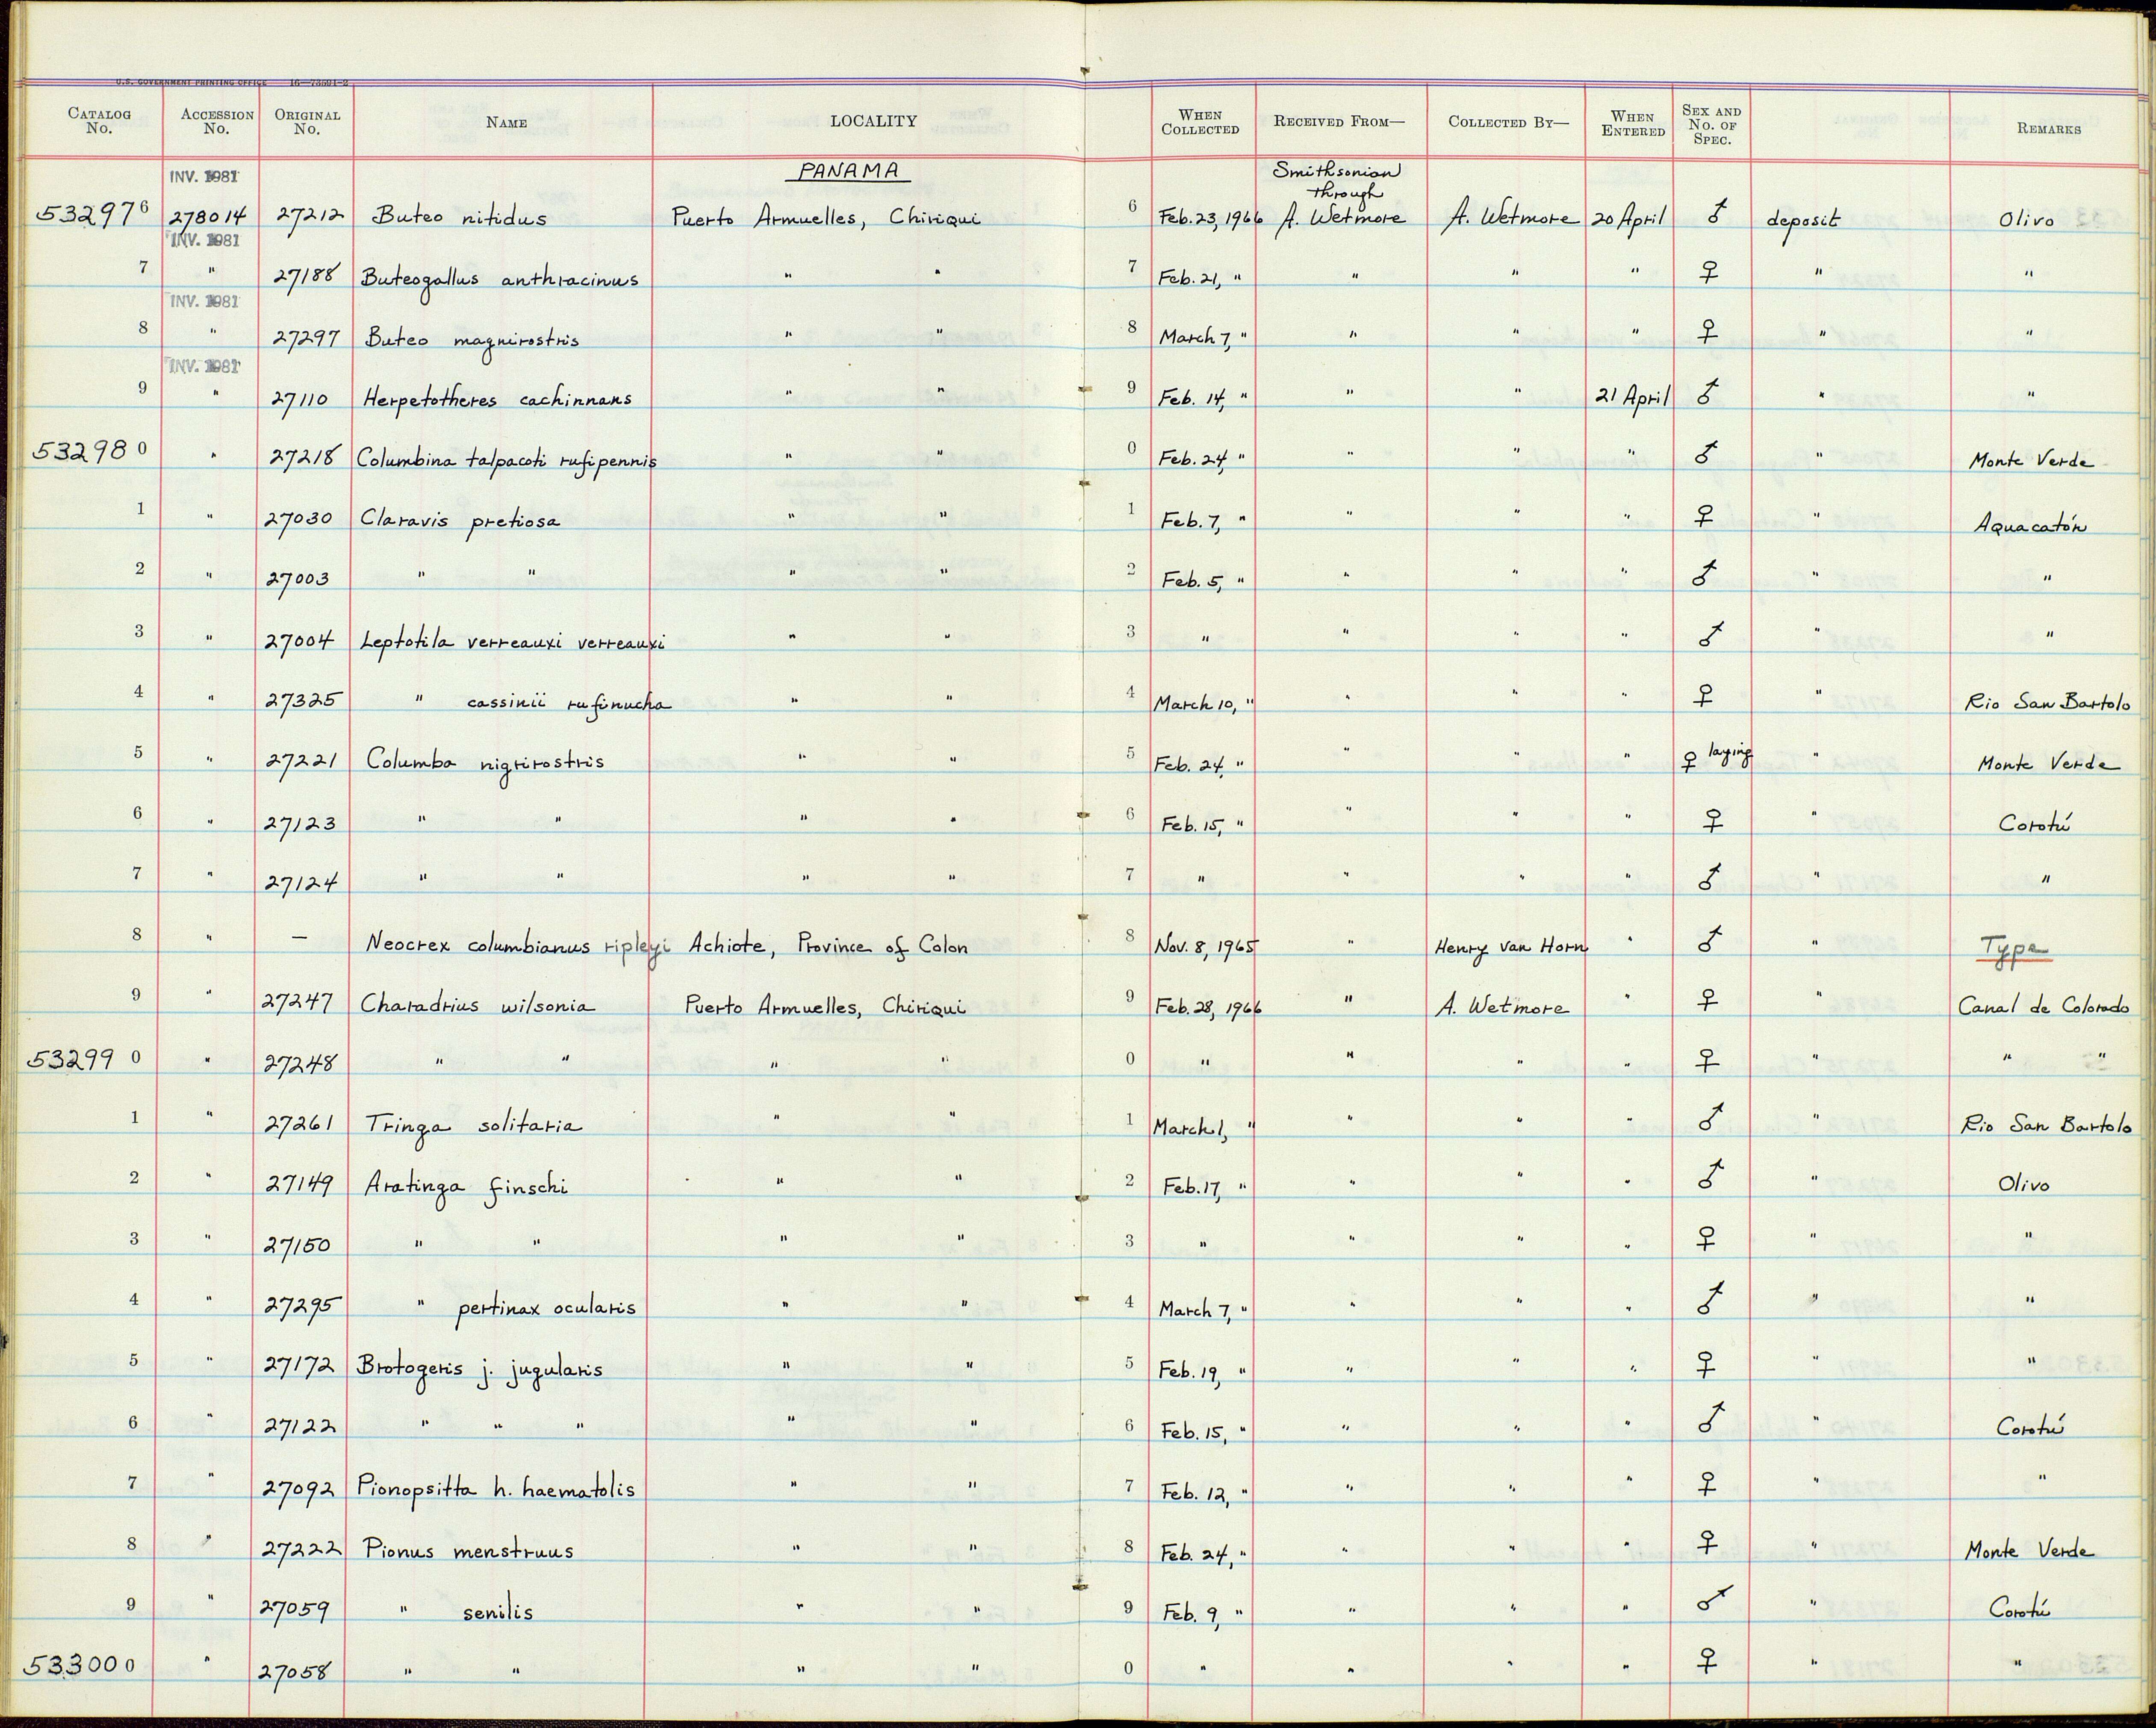 U.S. GOVERNMENT PRINTING OFFICE 16—73591-2
CATALOG No. ACCESSION No. ORIGINAL No. NAME LOCALITY WHEN COLLECTED RECEIVED FROM— COLLECTED BY— WHEN ENTERED SEX AND No. OF SPEC. REMARKS
INV. 1981 PANAMA Smithsonian through
532976 278014 27212 Buteo nitidus Puerto Armuelles, Chiriqui 6 Feb. 23, 1966 A. Wetmore A. Wetmore 20 April ♂ deposit Olivo
INV. 1981
7 " 27188 Buteogallus anthracinus " " 7 Feb. 21, " " " " ♀ " "
INV. 1981
8 " 27297 Buteo magnirostris " " 8 March 7, " " " " ♀ " "
INV. 1981
9 " 27110 Herpetotheres cachinnans " " 9 Feb. 14, " " " 21 April ♂ " "
532980 " 27218 Columbina talpacoti rufipennis " " 0 Feb. 24, " " " " ♂ " Monte Verde
1 " 27030 Claravis pretiosa " " 1 Feb. 7, " " " " ♀ " Aquacatón
2 " 27003 " " " " 2 Feb. 5, " " " " ♂ " "
3 " 27004 Leptotila verreauxi verreauxi " " 3 " " " " ♂ " "
4 " 27325 " cassinii rufinucha " " 4 March 10, " " " " ♀ " Rio San Bartolo
5 " 27221 Columba nigrirostris " " 5 Feb. 24, " " " " ♀ laying " Monte Verde
6 " 27123 " " " " 6 Feb. 15, " " " " ♀ " Corotú
7 " 27124 " " " " 7 " " " " ♂ " "
8 " — Neocrex columbianus ripleyi Achiote, Province of Colon 8 Nov. 8, 1965 " Henry van Horn " ♂ " Type
9 " 27247 Charadrius wilsonia Puerto Armuelles, Chiriqui 9 Feb. 28, 1966 " A. Wetmore " ♀ " Canal de Colorado
532990 " 27248 " " " " 0 " " " " ♀ " " "
1 " 27261 Tringa solitaria " " 1 March 1, " " " " ♂ " Rio San Bartolo
2 " 27149 Aratinga finschi " " 2 Feb. 17, " " " " ♂ " Olivo
3 " 27150 " " " " 3 " " " " ♀ " "
4 " 27295 " pertinax ocularis " " 4 March 7, " " " " ♂ " "
5 " 27172 Brotogeris j. jugularis " " 5 Feb. 19, " " " " ♀ " "
6 " 27122 " " " " " 6 Feb. 15, " " " " ♂ " Corotú
7 " 27092 Pionopsitta h. haematolis " " 7 Feb. 12, " " " " ♀ " "
8 " 27222 Pionus menstruus " " 8 Feb. 24, " " " " ♀ " Monte Verde
9 " 27059 " senilis " " 9 Feb. 9, " " " " ♂ " Corotú
533000 " 27058 " " " " 0 " " " " ♀ " "